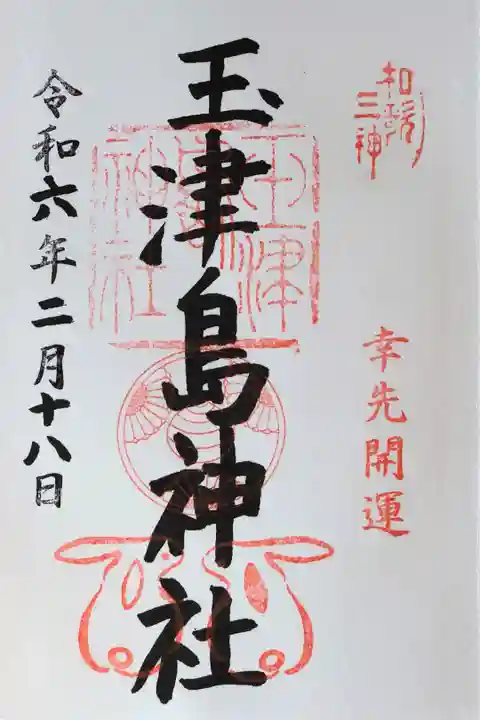 和歌三神
幸先開運
玉津島神社
玉津
島
神社
令和六年二月十八日